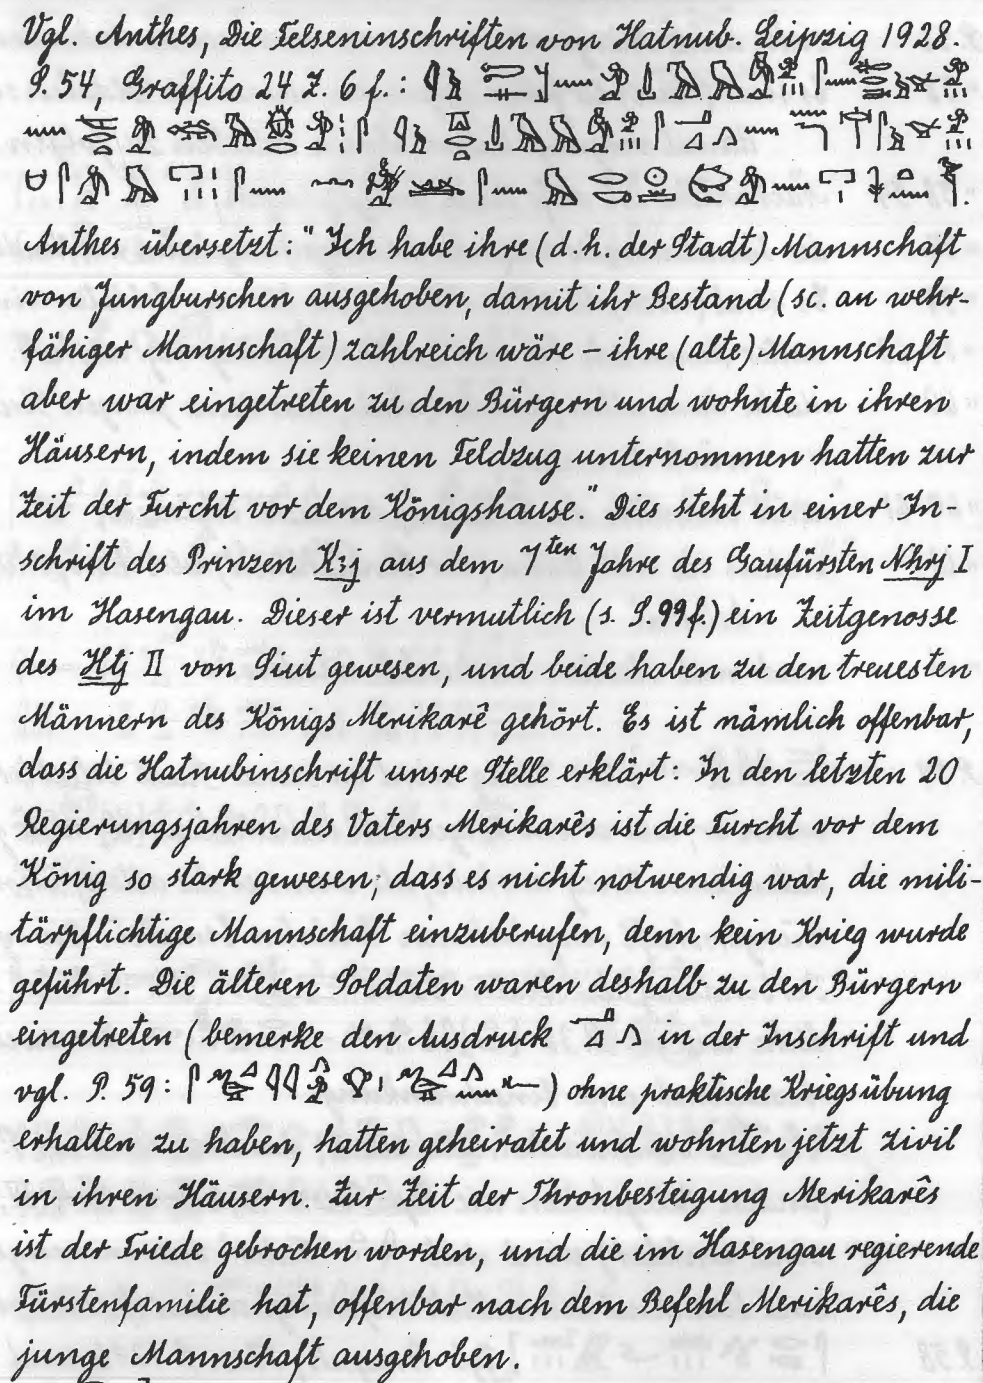 Vgl. Anthes, Die Felseninschriften von Hatnub. Leipzig 1928.
S. 54, Graffito 24 Z. 6 f.:
Anthes übersetzt: "Ich habe ihre (d.h. der Stadt) Mannschaft
von Jungburschen ausgehoben, damit ihr Bestand (sc. an wehr-
fähiger Mannschaft) zahlreich wäre – ihre (alte) Mannschaft
aber war eingetreten zu den Bürgern und wohnte in ihren
Häusern, indem sie keinen Feldzug unternommen hatten zur
Zeit der Furcht vor dem Königshause." Dies steht in einer In-
schrift des Prinzen Kꜣj aus dem 7ten Jahre des Gaufürsten Nḥrj I
im Hasengau. Dieser ist vermutlich (s. S. 99 f.) ein Zeitgenosse
des Ḫtj II von Siut gewesen, und beide haben zu den treuesten
Männern des Königs Merikarê gehört. Es ist nämlich offenbar,
dass die Hatnubinschrift unsre Stelle erklärt: In den letzten 20
Regierungsjahren des Vaters Merikarês ist die Furcht vor dem
König so stark gewesen, dass es nicht notwendig war, die mili-
tärpflichtige Mannschaft einzuberufen, denn kein Krieg wurde
geführt. Die älteren Soldaten waren deshalb zu den Bürgern
eingetreten (bemerke den Ausdruck in der Inschrift und
vgl. S. 59: ) ohne praktische Kriegsübung
erhalten zu haben, hatten geheiratet und wohnten jetzt zivil
in ihren Häusern. Zur Zeit der Thronbesteigung Merikarês
ist der Friede gebrochen worden, und die im Hasengau regierende
Fürstenfamilie hat, offenbar nach dem Befehl Merikarês, die
junge Mannschaft ausgehoben.